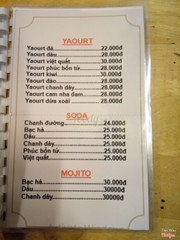 YAOURT
Yaourt đá 22.000đ
Yaourt dâu 28.000đ
Yaourt việt quất 30.000đ
Yaourt phúc bồn tử 28.000đ
Yaourt kiwi 30.000đ
Yaourt đào 28.000đ
Yaourt chanh dây 28.000đ
Yaourt cam nha đam 28.000đ
Yaourt dừa xoài 28.000đ
SODA
Chanh đường 24.000đ
Bạc hà 25.000đ
Dâu 25.000đ
Chanh dây 25.000đ
Phúc bồn tử 25.000đ
Việt quất 25.000đ
MOJITO
Bạc hà 30.000đ
Dâu 30000đ
Chanh dây 30000đ